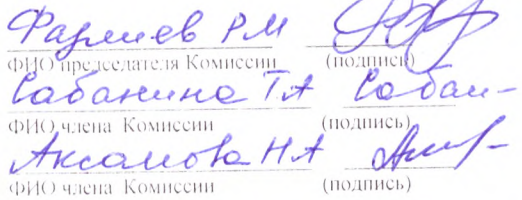 Фазлиев РМ
ФИО председателя Комиссии (подпись)
Сабанина ТА Сабан-
ФИО члена Комиссии (подпись)
Аксанова НА
ФИО члена Комиссии (подпись)